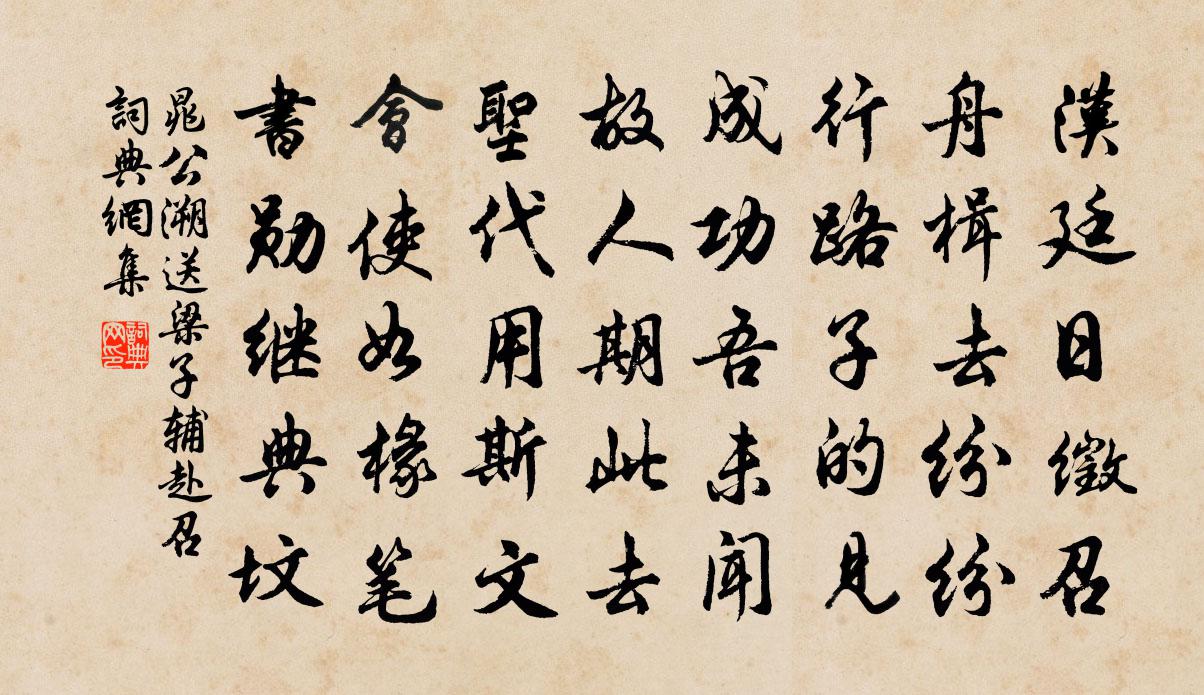 漢廷日徽召
舟楫去紛紛
行路子的見
成功吾未聞
故人期此去
聖代用斯文
會使如椽笔
書勋继典坟
晁公溯送梁子辅赴召
詞典網集
詞典网印